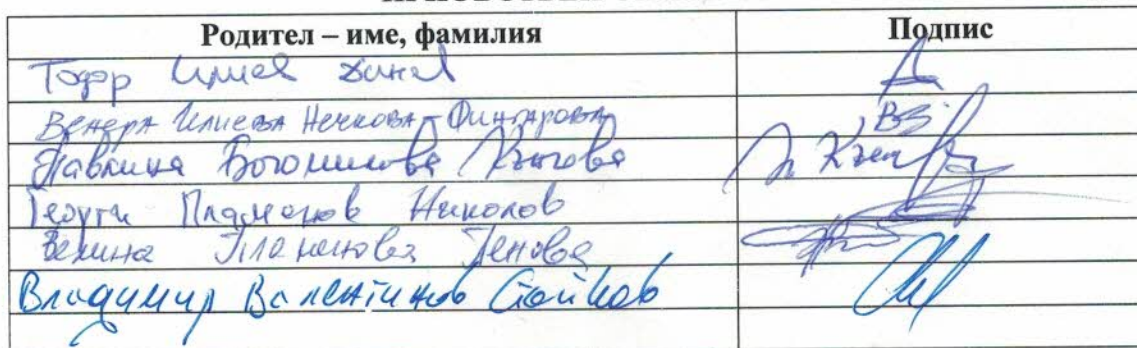 Родител – име, фамилия Подпис
Тодор Илиев
Венера Илиева Нечкова-Фингарова ВЗ
Павлина Богомилова
Георги Пламенов Николов
Велина Пламенова Генова
Владимир Валентинов Стойков